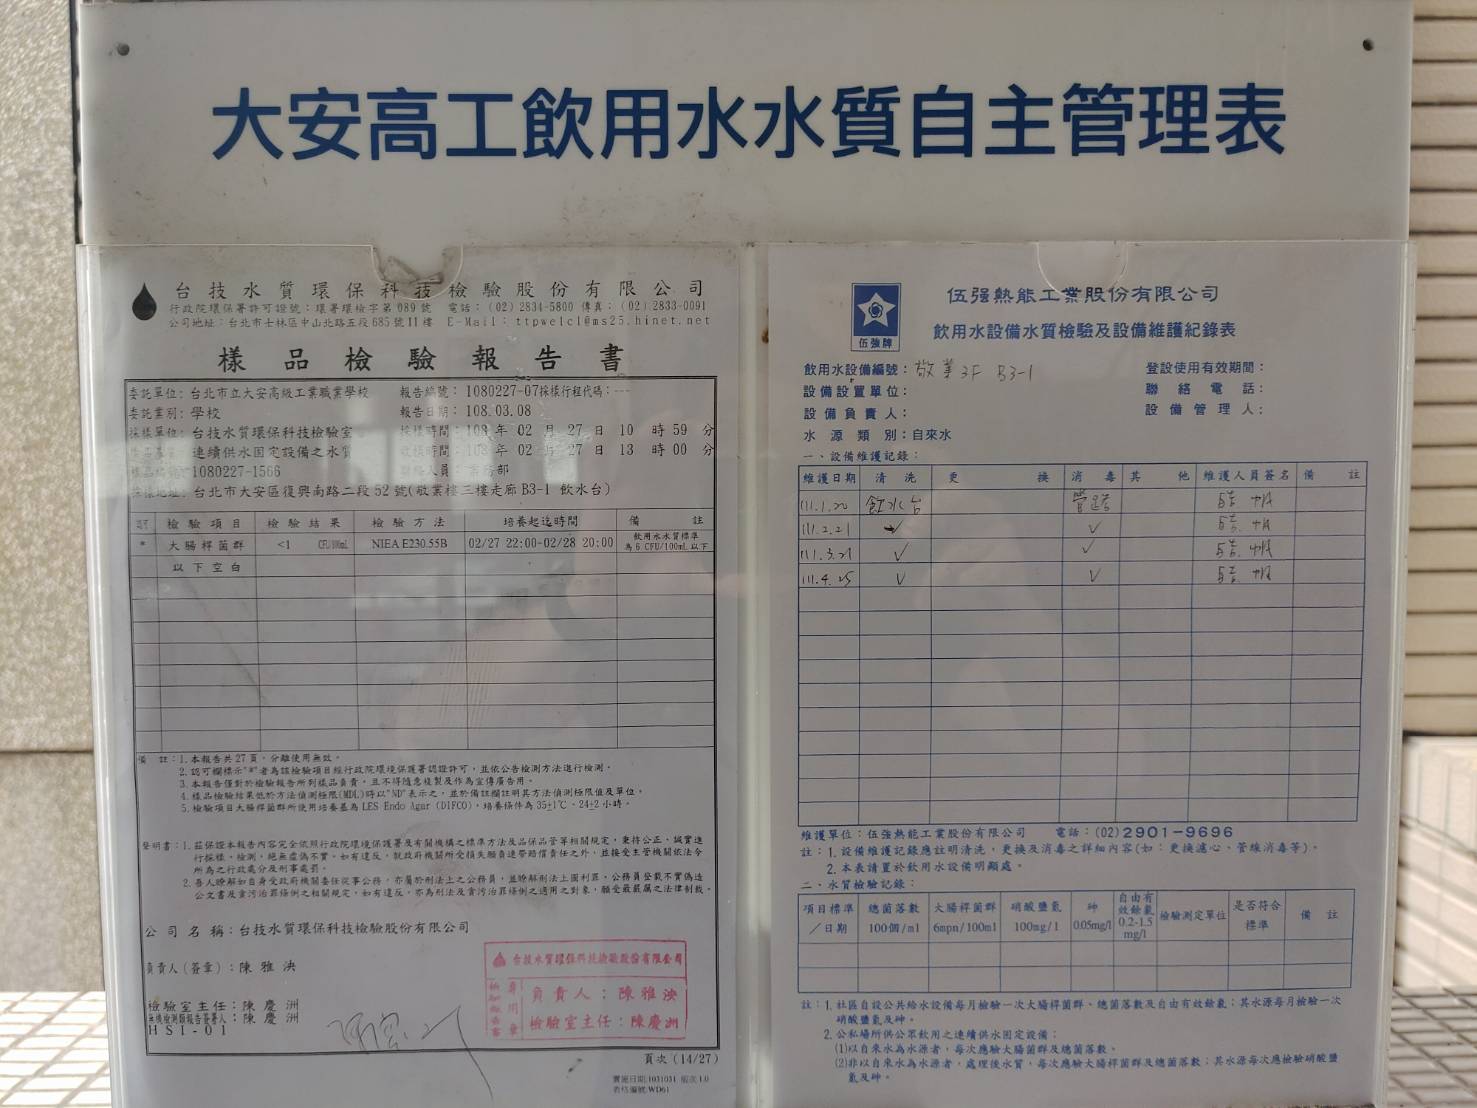 大安高工飲用水水質自主管理表
台技水質環保科技檢驗股份有限公司
行政院環保署許可證號：環署環檢字第089號 電話：(02)2834-5800 傳真：(02)2833-0091
公司地址：台北市士林區中山北路五段685號11樓 E-Mail：ttpwelcl@ms25.hinet.net
樣品檢驗報告書
委託單位：台北市立大安高級工業職業學校 報告編號：1080227-07採樣行程代碼：---
委託業別：學校 報告日期：108.03.08
採樣單位：台技水質環保科技檢驗室 採樣時間：108年02月27日10時59分
連續供水固定設備之水質 收樣時間：108年02月27日13時00分
樣品編號：1080227-1566
採樣地址：台北市大安區復興南路二段52號(敬業樓三樓走廊B3-1 飲水台)
檢驗項目 檢驗結果 檢驗方法 培養起迄時間 備註
* 大腸桿菌群 <1 CFU/100mL NIEA E230.55B 02/27 22:00-02/28 20:00 飲用水水質標準
為6 CFU/100mL以下
以下空白
備 註：1.本報告共27頁，分離使用無效。
2.認可欄標示"*"者為該檢驗項目經行政院環境保護署認證許可，並依公告檢測方法進行檢測。
3.本報告僅對於檢驗報告所列樣品負責，且不得隨意複製及作為宣傳廣告用。
4.樣品檢驗結果低於方法偵測極限(MDL)時以"ND"表示之，並於備註欄註明其方法偵測極限值及單位。
5.檢驗項目大腸桿菌群所使用培養基為LES Endo Agar (DIFCO)，培養條件為35±1℃、24±2小時。
聲明書：1.茲保證本報告內容完全依照行政院環境保護署及有關機構之標準方法及品保品管等相關規定，秉持公正、誠實進
行採樣、檢測，絕無虛偽不實，如有違反，就政府機關所受損失願負連帶賠償責任之外，並接受主管機關依法令
所為之行政處分及刑事處罰。
2.吾人瞭解如自身受政府機關委任從事公務，亦屬於刑法上之公務員，並瞭解刑法上圖利罪、公務員登載不實偽造
公文書及貪污治罪條例之相關規定，如有違反，亦為刑法及貪污治罪條例之適用之對象，願受最嚴厲之法律制裁。
公司名稱：台技水質環保科技檢驗股份有限公司
負責人(簽章)：陳雅泱
檢驗室主任：陳慶洲
無機檢測類報告簽署人：陳慶洲
HSI-01
台技水質環保科技檢驗股份有限公司
負責人：陳雅泱
檢驗室主任：陳慶洲
頁次(14/27)
實施日期:1031031 版次1.0
表格編號:WD61
伍強牌
伍强熱能工業股份有限公司
飲用水設備水質檢驗及設備維護紀錄表
飲用水設備編號：敬業3F B3-1 登設使用有效期間：
設備設置單位： 聯絡電話：
設備負責人： 設備管理人：
水源類別：自來水
一、設備維護記錄：
維護日期 清洗 更換 消毒 其他 維護人員簽名 備註
111.1.20 飲水台 管路
111.2.21 ✓ ✓
111.3.21 ✓ ✓
111.4.25 ✓ ✓
維護單位：伍強熱能工業股份有限公司 電話：(02)2901-9696
註：1.設備維護記錄應註明清洗，更換及消毒之詳細內容(如：更換濾心、管線消毒等)。
2.本表請置於飲用水設備明顯處。
二、水質檢驗記錄：
項目標準／日期 總菌落數100個/ml 大腸桿菌群6mpn/100ml 硝酸鹽氮100mg/1 砷0.05mg/l 自由有效餘氯0.2-1.5mg/l 檢驗測定單位 是否符合標準 備註
註：1.社區自設公共給水設備每月檢驗一次大腸桿菌群、總菌落數及自由有效餘氯；其水源每月檢驗一次
硝酸鹽氮及砷。
2.公私場所供公眾飲用之連續供水固定設備：
(1)以自來水為水源者，每次應驗大腸桿菌群及總菌落數。
(2)非以自來水為水源者，處理後水質，每次應驗大腸桿菌群及總菌落數；其水源每次應檢驗硝酸鹽
氮及砷。